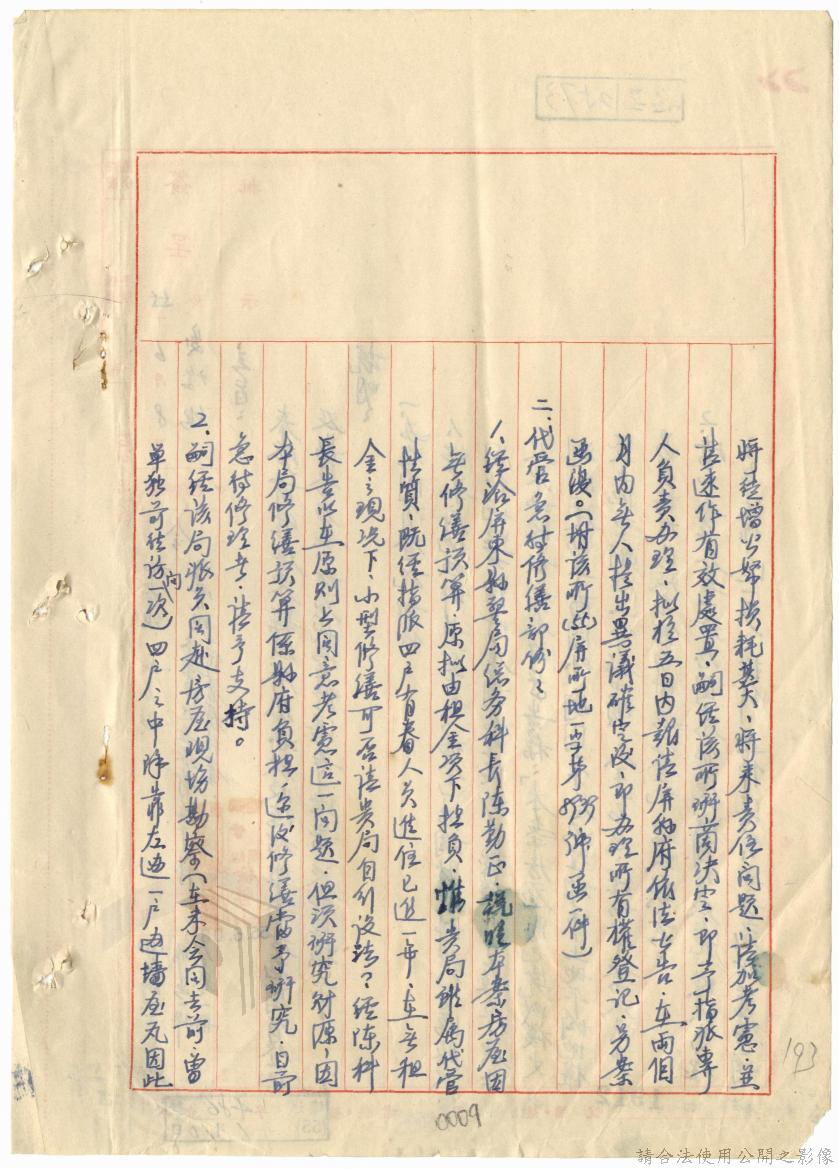 將徒增公帑損耗甚大、將來責任問題、請加考慮、並
請速作有效處置、嗣經該所研商決定、即予指派專
人負責辦理、擬於五日內報請屏縣府依法公告、在兩個
月內無人提出異議確定後、即辦理所有權登記、另案
函復。(附該所(55)屏所地一字第8939號函一件)
二、代管、急待修繕部份:
1、經洽屏東縣警局總務科長陳勤正、說明本案房屋因
無修繕預算、原擬由租金項下担負、惟貴局雖屬代管
性質、既經指派四戶有眷人員進住已近一年、在無租
金之現況下、小型修繕可否請貴局自行設法?經陳科
長告以在原則上同意考慮這一問題、但須研究財源、因
本局修繕預算係縣府負担、返後修繕當予研究、目前
急待修理者、請予支持。
2、嗣經該局派員同赴房屋現場勘察(在未會同去前、曾
單獨前往訪問一次)四戶之中除靠左邊一戶邊牆屋瓦因此
193
0009
請合法使用公開之影像